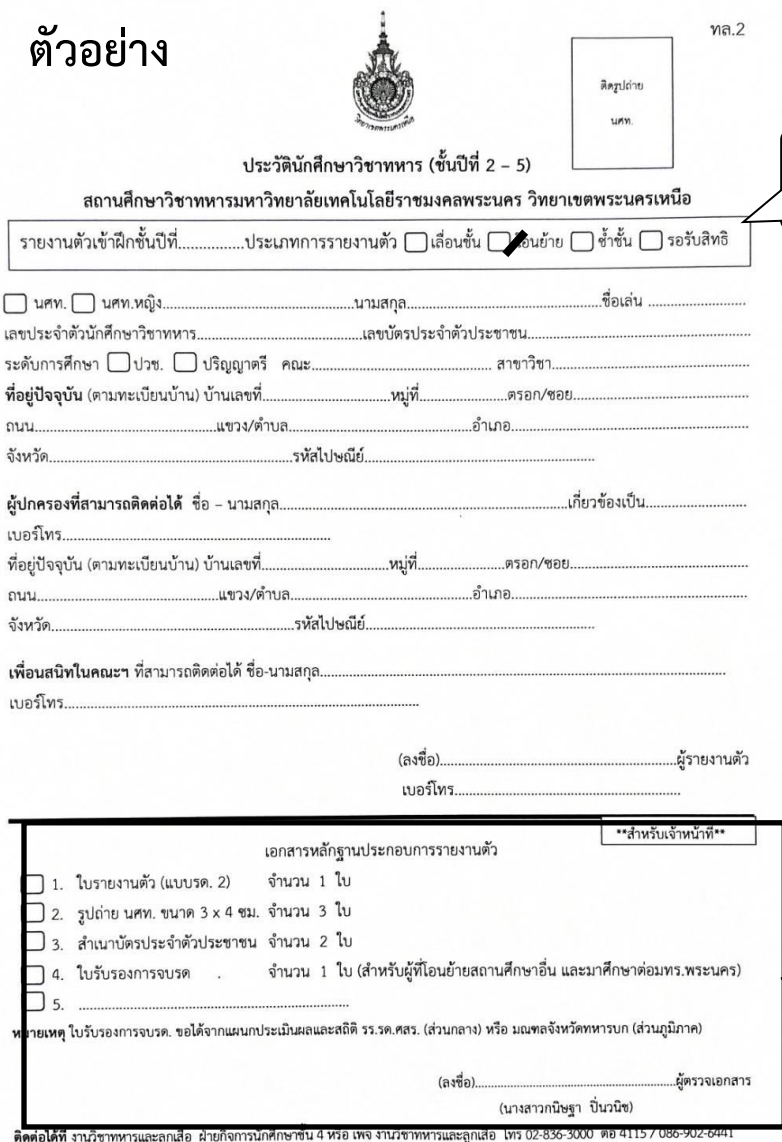 ตัวอย่าง
ทล.2
ติดรูปถ่าย
นศท.
วิทยาเขตพระนครเหนือ
ประวัตินักศึกษาวิชาทหาร (ชั้นปีที่ 2 – 5)
สถานศึกษาวิชาทหารมหาวิทยาลัยเทคโนโลยีราชมงคลพระนคร วิทยาเขตพระนครเหนือ
รายงานตัวเข้าฝึกชั้นปีที่...............ประเภทการรายงานตัว เลื่อนชั้น โอนย้าย ซ้ำชั้น รอรับสิทธิ
นศท. นศท.หญิง...............นามสกุล...............ชื่อเล่น ...............
เลขประจำตัวนักศึกษาวิชาทหาร...............เลขบัตรประจำตัวประชาชน...............
ระดับการศึกษา ปวช. ปริญญาตรี คณะ............... สาขาวิชา...............
ที่อยู่ปัจจุบัน (ตามทะเบียนบ้าน) บ้านเลขที่...............หมู่ที่...............ตรอก/ซอย...............
ถนน...............แขวง/ตำบล...............อำเภอ...............
จังหวัด...............รหัสไปษณีย์...............
ผู้ปกครองที่สามารถติดต่อได้ ชื่อ – นามสกุล...............เกี่ยวข้องเป็น...............
เบอร์โทร...............
ที่อยู่ปัจจุบัน (ตามทะเบียนบ้าน) บ้านเลขที่...............หมู่ที่...............ตรอก/ซอย...............
ถนน...............แขวง/ตำบล...............อำเภอ...............
จังหวัด...............รหัสไปษณีย์...............
เพื่อนสนิทในคณะฯ ที่สามารถติดต่อได้ ชื่อ-นามสกุล...............
เบอร์โทร...............
(ลงชื่อ)...............ผู้รายงานตัว
เบอร์โทร...............
**สำหรับเจ้าหน้าที่**
เอกสารหลักฐานประกอบการรายงานตัว
1. ใบรายงานตัว (แบบรด. 2) จำนวน 1 ใบ
2. รูปถ่าย นศท. ขนาด 3 x 4 ซม. จำนวน 3 ใบ
3. สำเนาบัตรประจำตัวประชาชน จำนวน 2 ใบ
4. ใบรับรองการจบรด . จำนวน 1 ใบ (สำหรับผู้ที่โอนย้ายสถานศึกษาอื่น และมาศึกษาต่อมทร.พระนคร)
5. ...............
หมายเหตุ ใบรับรองการจบรด. ขอได้จากแผนกประเมินผลและสถิติ รร.รด.ศสร. (ส่วนกลาง) หรือ มณฑลจังหวัดทหารบก (ส่วนภูมิภาค)
(ลงชื่อ)...............ผู้ตรวจเอกสาร
(นางสาวกนิษฐา ปิ่นวนิช)
ติดต่อได้ที่ งานวิชาทหารและลูกเสือ ฝ่ายกิจการนักศึกษาชั้น 4 หรือ เพจ งานวิชาทหารและลูกเสือ โทร 02-836-3000 ต่อ 4115 / 086-902-6441